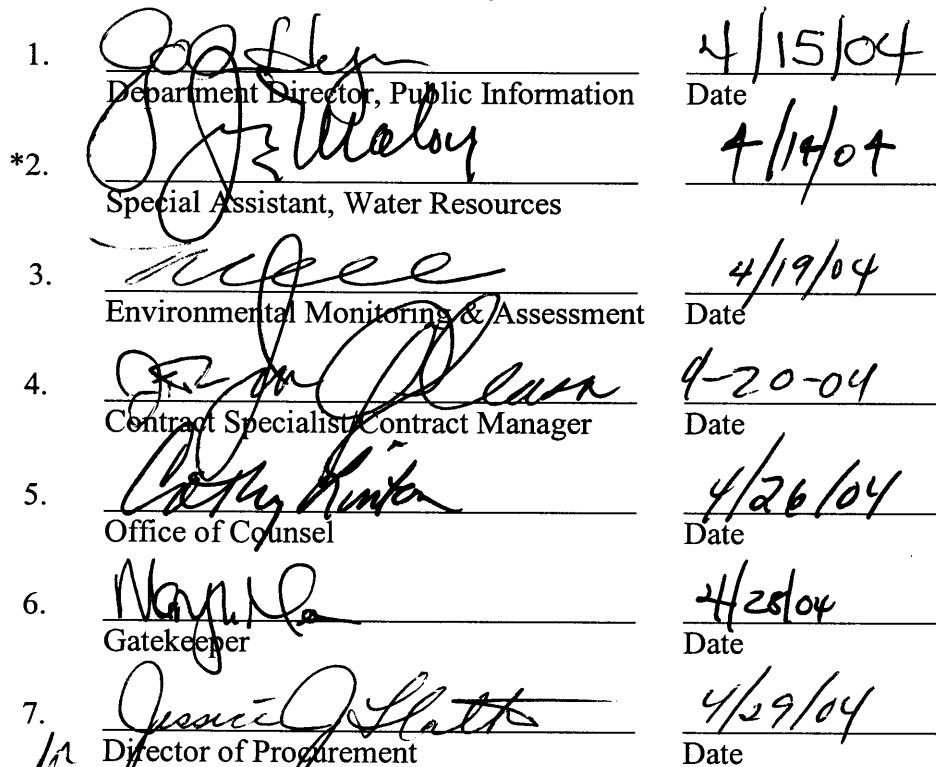 1. 4/15/04
Department Director, Public Information Date
*2. Maloy 4/14/04
Special Assistant, Water Resources
3. 4/19/04
Environmental Monitoring & Assessment Date
4. 4-20-04
Contract Specialist/Contract Manager Date
5. Cathy Linton 4/26/04
Office of Counsel Date
6. 4/28/04
Gatekeeper Date
7. Jessica J. 4/29/04
Director of Procurement Date